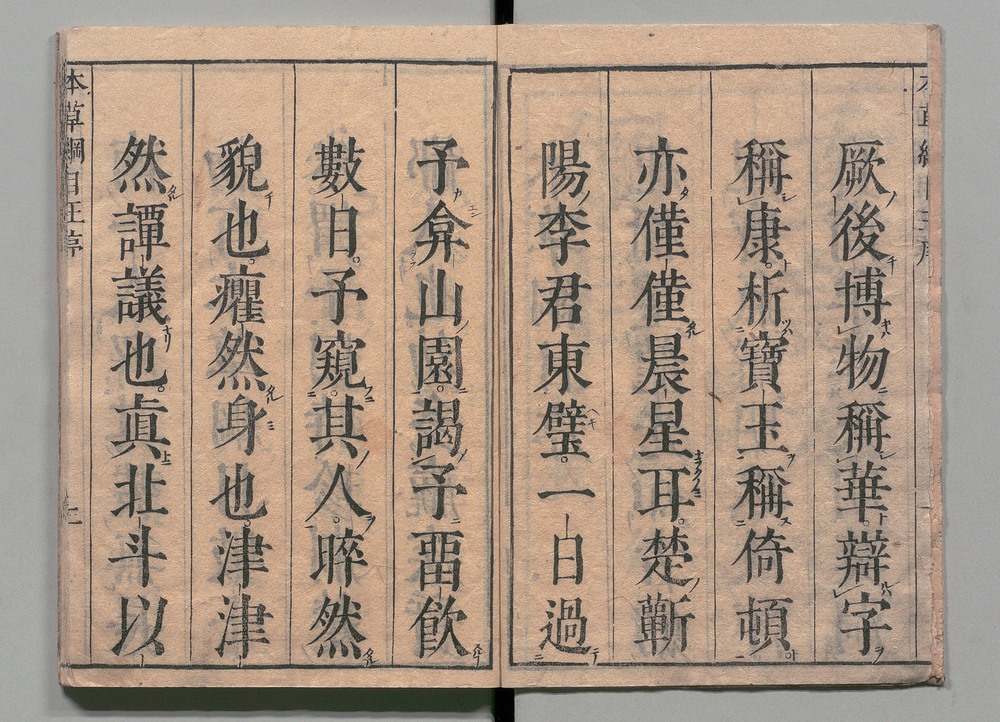 厥後博物稱華辯字
稱康析寶玉稱倚頓
亦僅僅晨星耳楚蘄
陽李君東璧一日過
予弇山園謁予畱飮
數日予窺其人晬然
貌也癯然身也津津
然譚議也眞北斗以
本草綱目王序